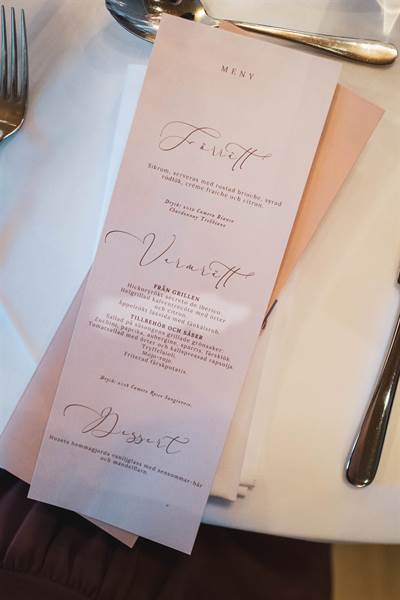 MENY
Förrätt
Sikrom, serveras med rostad brioche, syrad
rödlök, crème fraiche och citron.
Dryck: 2019 Camera Bianco
Chardonnay Trebbiano
Varmrätt
FRÅN GRILLEN
Hickoryrökt secreto de iberico.
Helgrillad kalventrecôte med örter
och citron.
Äppelrökt laxsida med färskålsrub.
TILLBEHÖR OCH SÅSER
Sallad på säsongens grillade grönsaker
Zucchini, paprika, aubergine, sparris, färsklök.
Tomatsallad med örter och kallpressad rapsolja.
Tryffelaioli.
Mojo-rojo.
Friterad färskpotatis.
Dryck: 2018 Camera Rosso Sangiovese.
Dessert
Husets hemmagjorda vaniljglass med sensommar-bär
och mandelflarn.